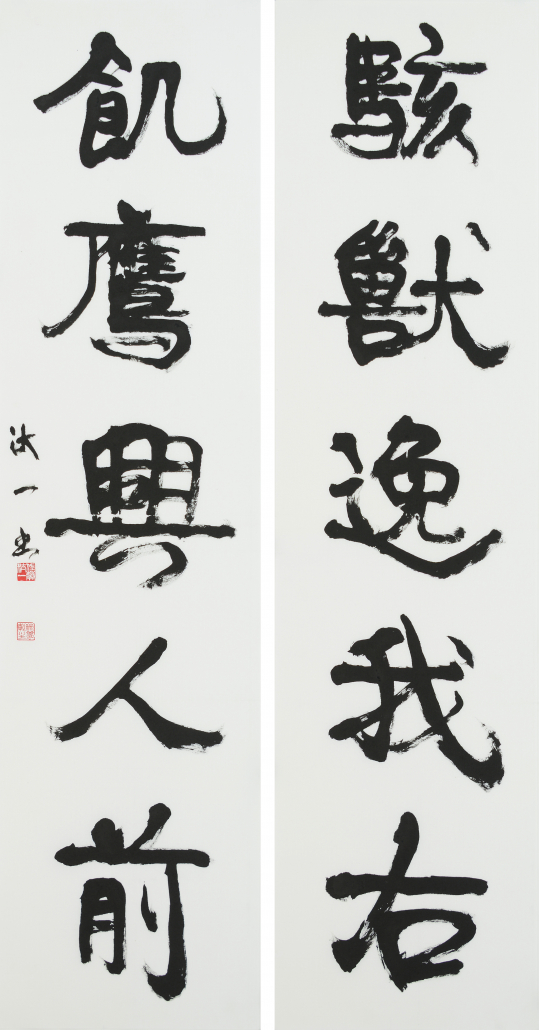 駭獸逸我右
飢鷹興人前
一書